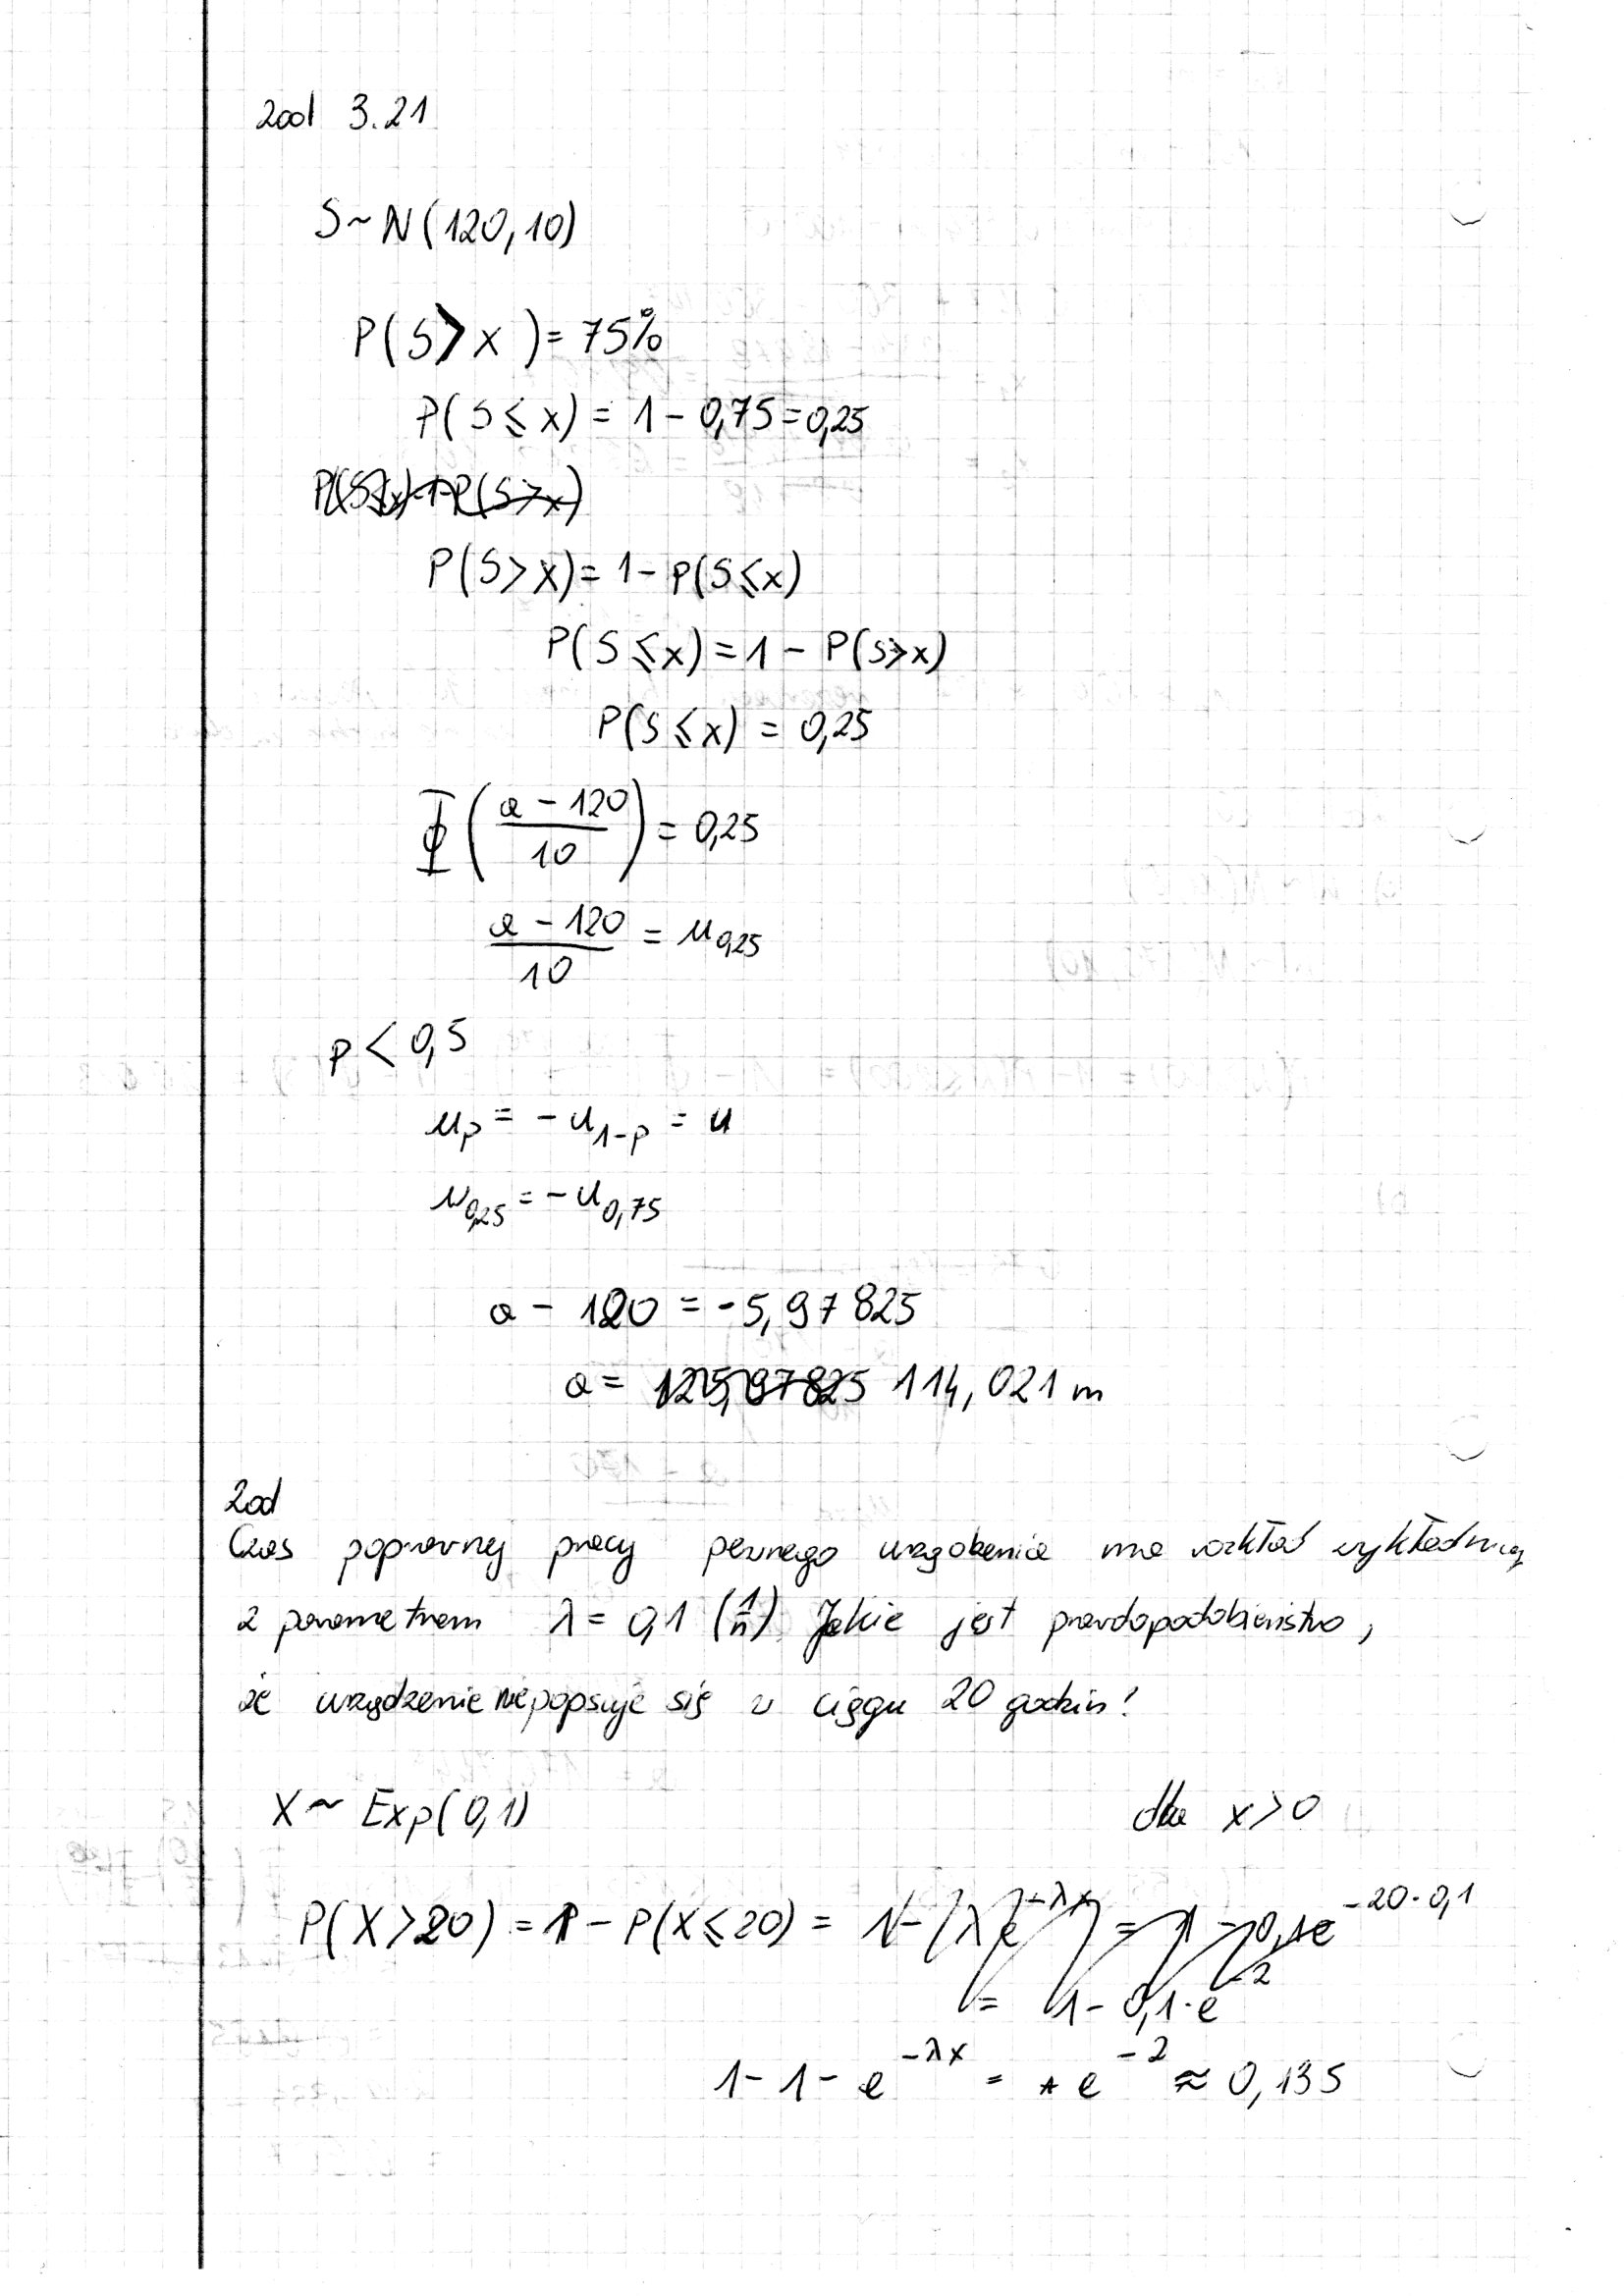 Zad 3.21
S ~ N(120, 10)
P(S > x) = 75%
P(S ⩽ x) = 1 - 0,75 = 0,25
P(S > x) = 1 - P(S ⩽ x)
P(S ⩽ x) = 1 - P(S > x)
P(S ⩽ x) = 0,25
Φ((a - 120)/10) = 0,25
(a - 120)/10 = u0,25
p < 0,5
up = - u1-p = u
u0,25 = - u0,75
a - 120 = -5,97825
a = 125,97825 114,021 m
Zad
Czas poprawnej pracy pewnego urządzenia ma rozkład wykładniczy
z parametrem λ = 0,1 (1/h) Jakie jest prawdopodobieństwo,
że urządzenie nie popsuje się w ciągu 20 godzin?
X ~ Exp(0,1) dla x > 0
P(X > 20) = 1 - P(X ⩽ 20) = 1 - (λe^-λx) = 1 - 0,1e^-20·0,1
= 1 - 0,1·e^-2
1 - 1 - e^-λx = e^-2 ≈ 0,135